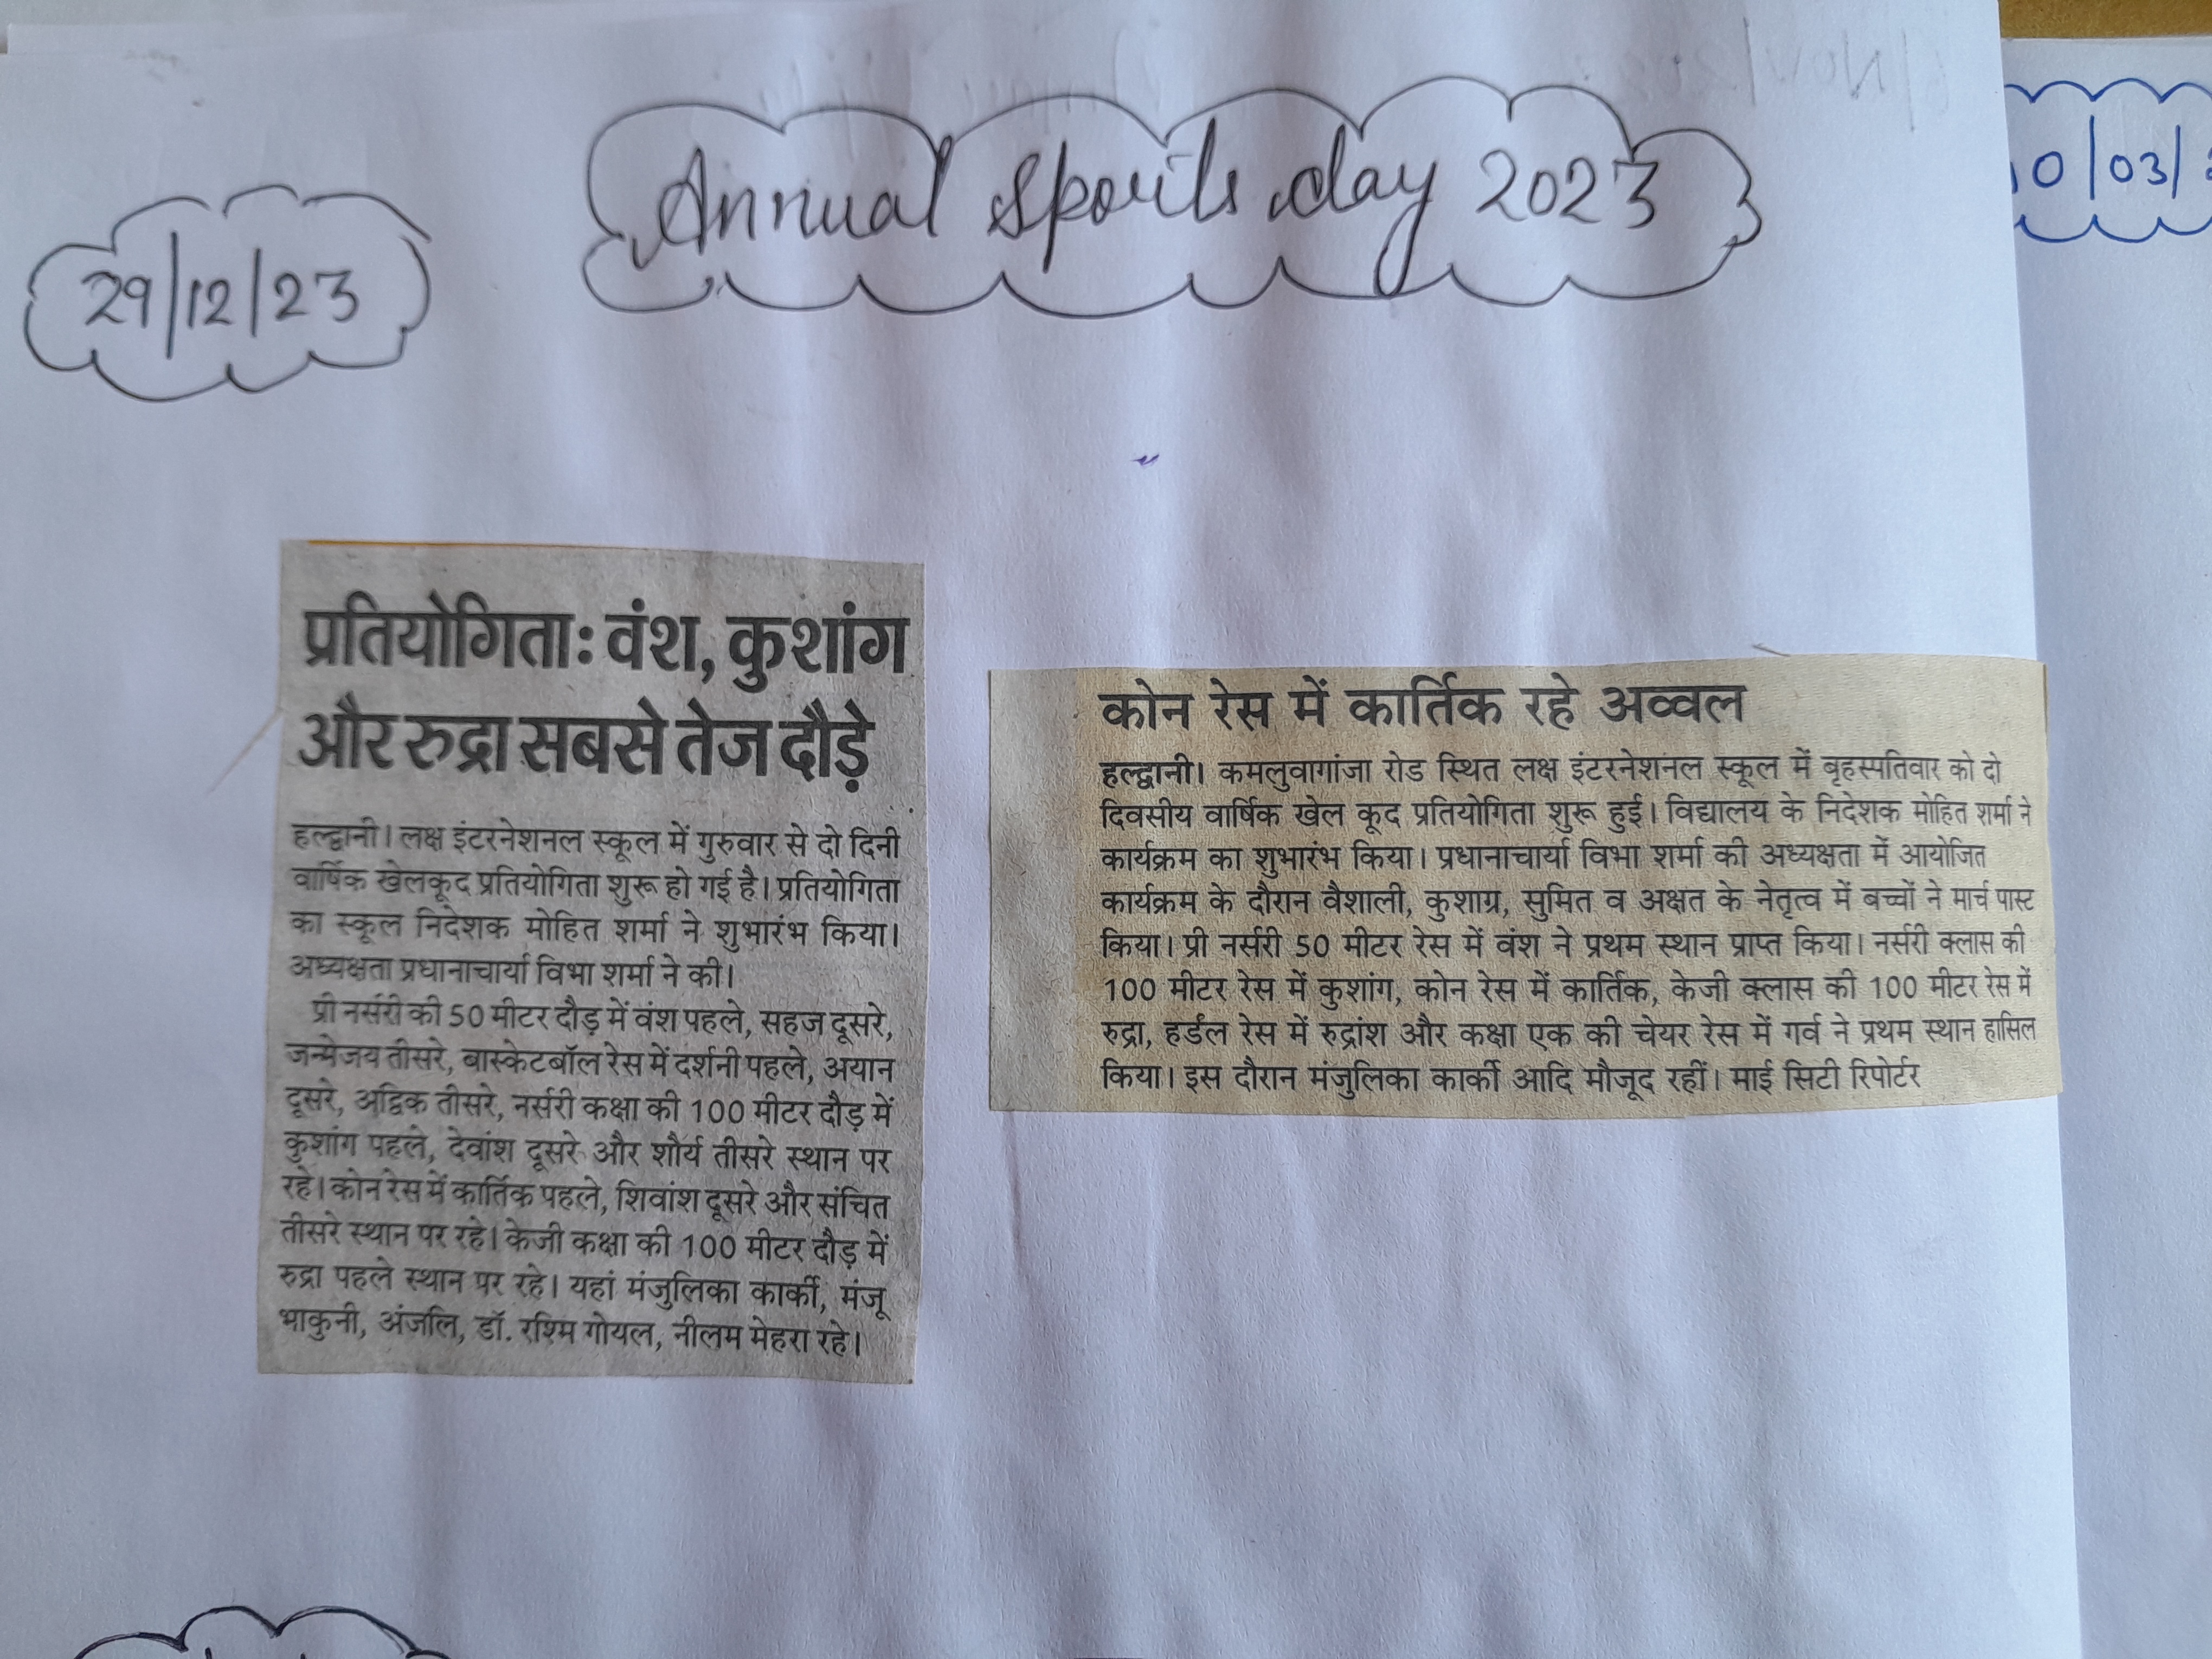 Annual sports day 2023
29/12/23
प्रतियोगिताः वंश, कुशांग
और रुद्रा सबसे तेज दौड़े
हल्द्वानी। लक्ष इंटरनेशनल स्कूल में गुरुवार से दो दिनी
वार्षिक खेलकूद प्रतियोगिता शुरू हो गई है। प्रतियोगिता
का स्कूल निदेशक मोहित शर्मा ने शुभारंभ किया।
अध्यक्षता प्रधानाचार्या विभा शर्मा ने की।
प्री नर्सरी की 50 मीटर दौड़ में वंश पहले, सहज दूसरे,
जन्मेजय तीसरे, बास्केटबॉल रेस में दर्शनी पहले, अयान
दूसरे, अद्विक तीसरे, नर्सरी कक्षा की 100 मीटर दौड़ में
कुशांग पहले, देवांश दूसरे और शौर्य तीसरे स्थान पर
रहे। कोन रेस में कार्तिक पहले, शिवांश दूसरे और संचित
तीसरे स्थान पर रहे। केजी कक्षा की 100 मीटर दौड़ में
रुद्रा पहले स्थान पर रहे। यहां मंजुलिका कार्की, मंजू
भाकुनी, अंजलि, डॉ. रश्मि गोयल, नीलम मेहरा रहे।
कोन रेस में कार्तिक रहे अव्वल
हल्द्वानी। कमलुवागांजा रोड स्थित लक्ष इंटरनेशनल स्कूल में बृहस्पतिवार को दो
दिवसीय वार्षिक खेल कूद प्रतियोगिता शुरू हुई। विद्यालय के निदेशक मोहित शर्मा ने
कार्यक्रम का शुभारंभ किया। प्रधानाचार्या विभा शर्मा की अध्यक्षता में आयोजित
कार्यक्रम के दौरान वैशाली, कुशाग्र, सुमित व अक्षत के नेतृत्व में बच्चों ने मार्च पास्ट
किया। प्री नर्सरी 50 मीटर रेस में वंश ने प्रथम स्थान प्राप्त किया। नर्सरी क्लास की
100 मीटर रेस में कुशांग, कोन रेस में कार्तिक, केजी क्लास की 100 मीटर रेस में
रुद्रा, हर्डल रेस में रुद्रांश और कक्षा एक की चेयर रेस में गर्व ने प्रथम स्थान हासिल
किया। इस दौरान मंजुलिका कार्की आदि मौजूद रहीं। माई सिटी रिपोर्टर